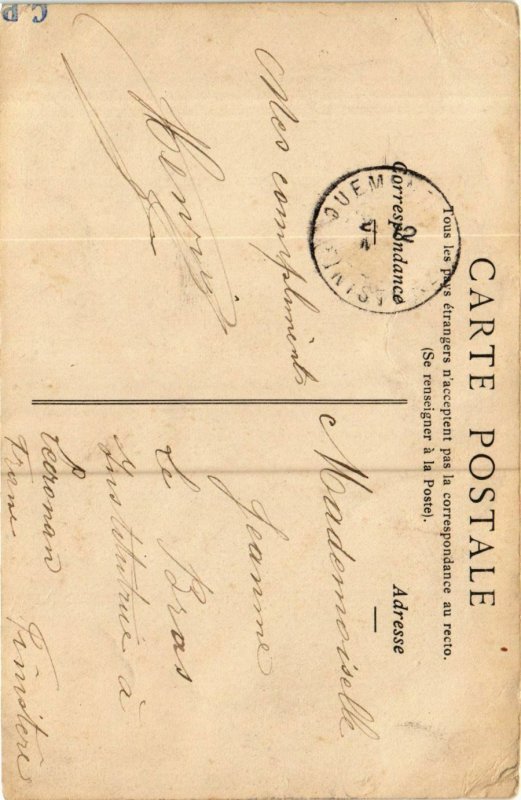 CARTE POSTALE
Tous les pays étrangers n'acceptent pas la correspondance au recto.
(Se renseigner à la Poste).
Correspondance
Adresse
GUEM
Mes compliments
Henry
Mademoiselle
Jeanne
Le Bras
Institutrice à
Locronan
Finistère
C.P